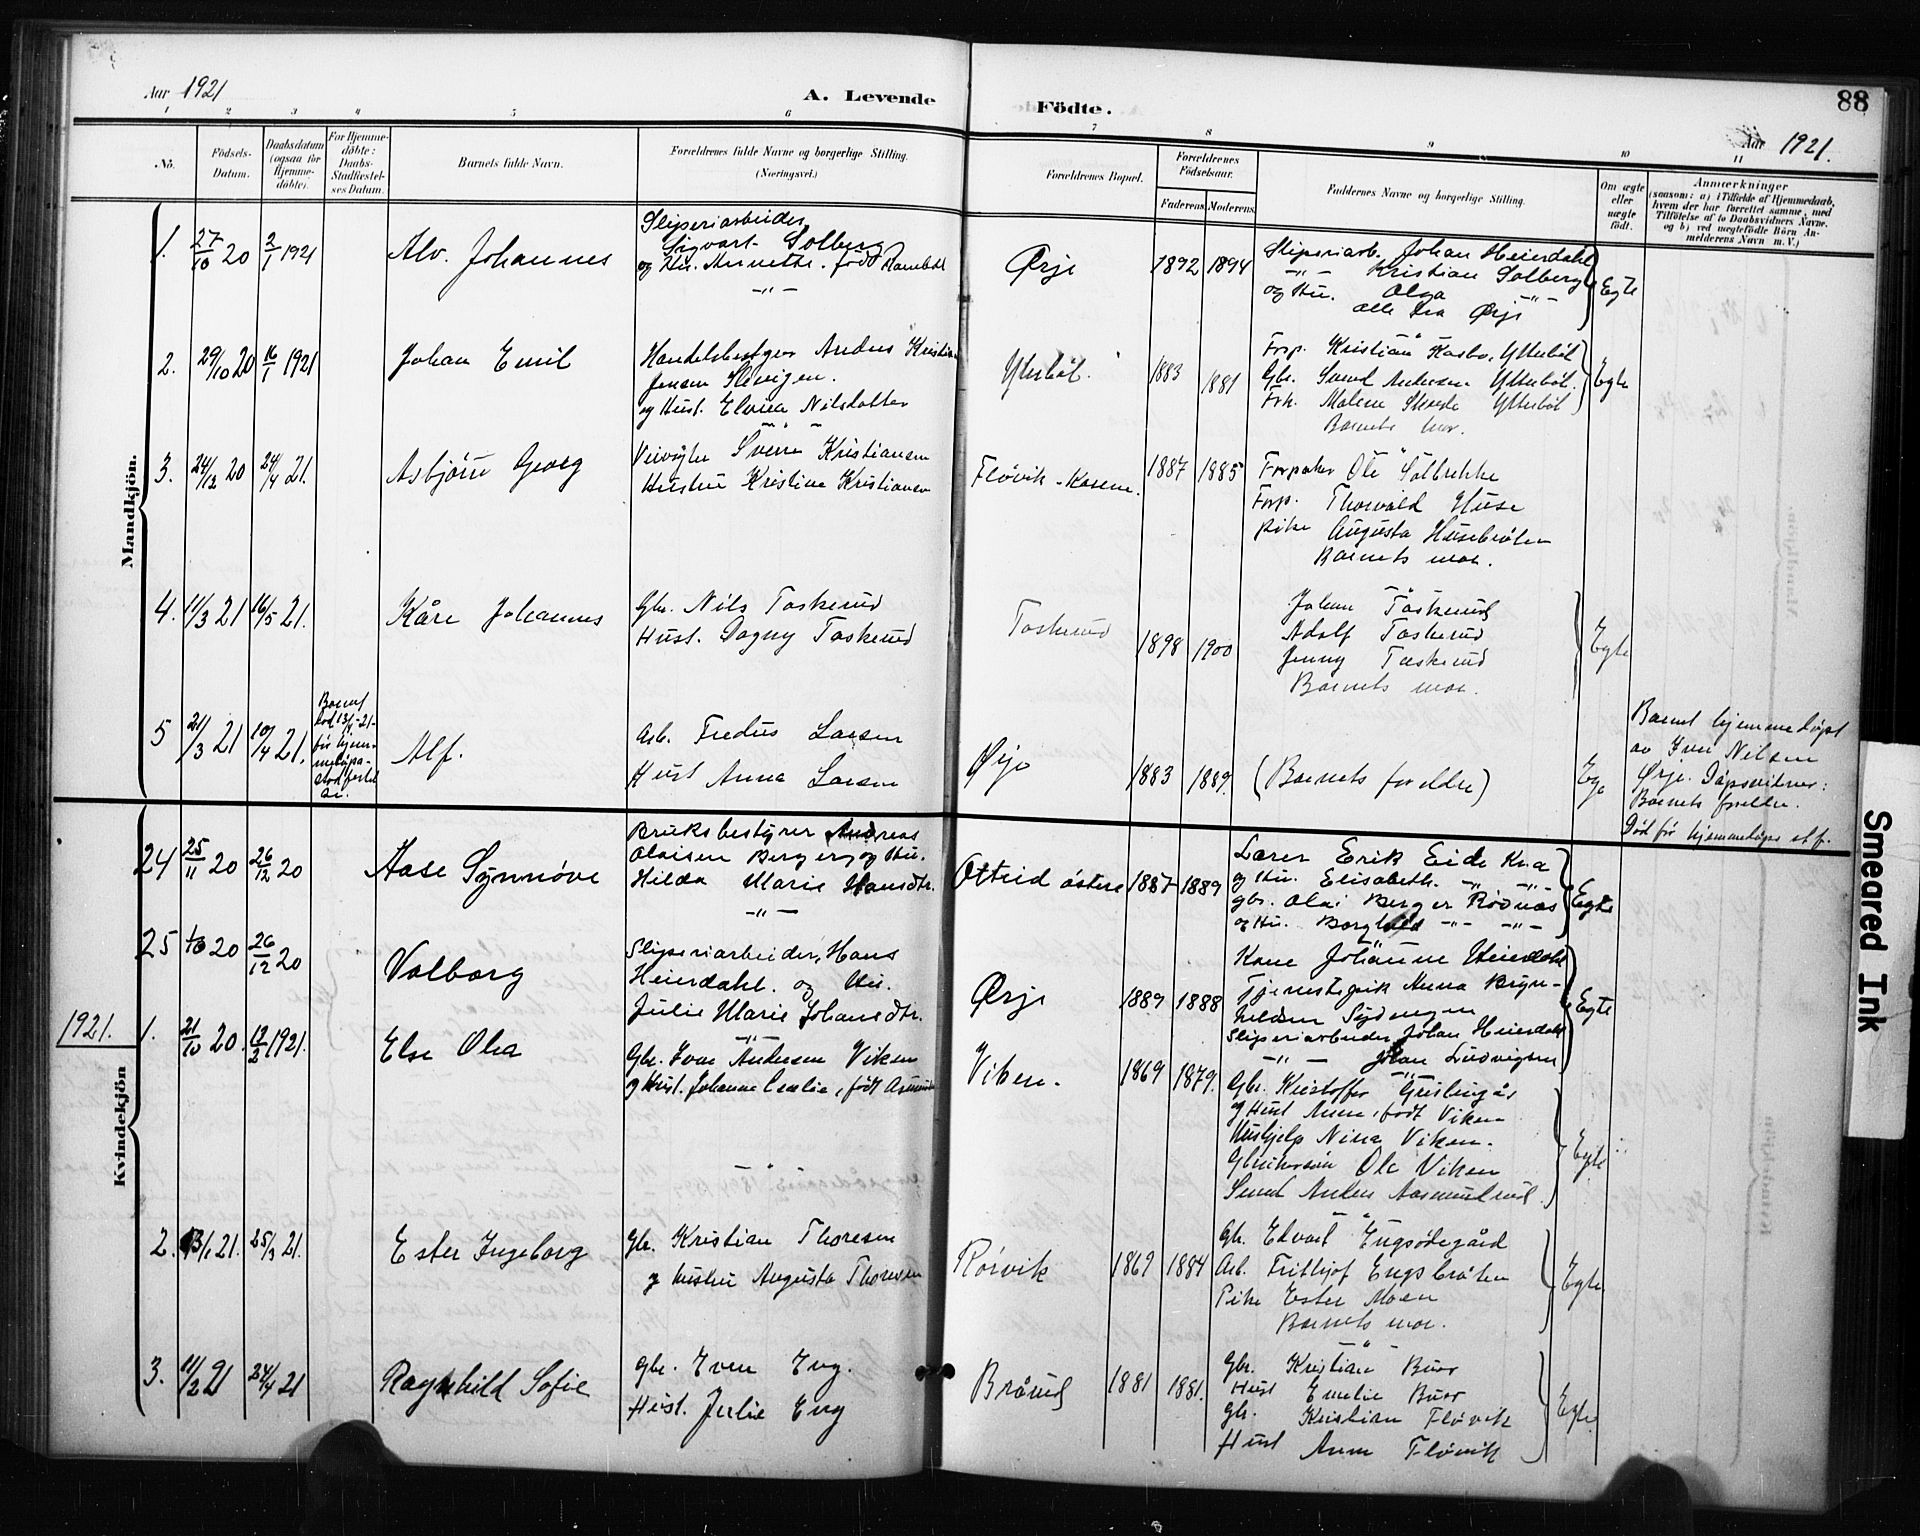 Aar 1921
A. Levende
Födte.
88
Aar 1921.
1 2 3 4 5 6 7 8 9 10 11
No.
Födsels-Datum.
Daabsdatum (ogsaa for Hjemme-döbte).
For Hjemme-döbte: Daabs-Stadfæstel-ses Datum.
Barnets fulde Navn.
Forældrenes fulde Navne og borgerlige Stilling.
(Næringsvei.)
Forældrenes Bopæl.
Forældrenes Födselsaar.
Faderens.
Moderens.
Faddernes Navne og borgerlige Stilling.
Om ægte eller uægte födt.
Anmærkninger
(saasom: a) i Tilfælde af Hjemmedaab, hvem der har forrettet samme, med Tilföielse af to Daabsvidners Navne. og b) ved uægtefödte Börn An-melderens Navn m. V.)
Mandkjön.
1. 27/10 20 2/1 1921 Alv. Johannes
Sliperiarbeider
Sigvart Solberg
og Hu. Annette. født
— " —
Ørje 1892 1894
Sliperiarb. Johan Heierdahl
— " — Kristian Solberg
og Hu. Olga — " —
alle fra Ørje
Egte
2. 29/10 20 16/1 1921 Johan Emil
Handelsbestyrer Anders Kristian
Jensen
og Hust. Elvina Nilsdatter
Ytterböl. 1883 1881
Forp. Kristian Kasbo, Ytterböl
Gbr. Svend Andersen Ytterböl.
Frk. Malene Ytterböl
Barnets mor.
Egte
3. 24/12 20 24/4 21. Asbjörn Georg
Veivogter Sverre Kristiansen
Hustru Kristine Kristiansen
Fløvik - Kasene. 1887 1885
Forpakter Ole Solbrekke
Forp. Thorvald Huse
pike Augusta Husebråten
Barnets mor.
4. 11/3 21 16/5 21. Kåre Johannes
Gbr. Nils Taskerud
Hust. Dagny Taskerud
Taskerud 1898 1900
Johan Taskerud
Adolf Taskerud
Jenny Taskerud
Barnets mor.
Egte
5 21/3 21 10/4 21.
Barnet
død 13/4 -21-
før hjem-
medåps-
stadfestel
se.
Alf.
Arb. Fredus Larsen
Hust Anna Larsen
Ørje 1883 1889.
(Barnets foreldre)
Egte
Barnet hjemmedøpt
av Iver Nilsen
Ørje. Dåpsvidner:
Barnets foreldre.
Død før hjemmedåpens st.f.
Kvindekjön
24 25/11 20 26/12 20 Aase Synnöve
Bruksbestyrer Andreas
Olaisen Berger og Hu.
Hilda Marie Hansdtr.
— " —
Otteid östere 1887 1889
Lærer Erik Eide
og Hu. Elisabeth. — " — — " —
gbr. Olai Berger Rödnäs
og Hu. Borghild — " — — " —
Egte
25 /10 20 26/12 20 Valborg
Sliperiarbeider, Hans
Heierdahl. og Hu.
Julie Marie Johansdtr.
— " —
Ørje 1889 1888
Kone Johanne Heierdahl
Tjenestepik Anna Bryn-
hildsen Sydengen
Sliperiarbeider Johan Heierdahl
— " — Johan Ludvigsen
Egte
1921.
1. 21/10 20. 12/2 1921. Else Olea
Gbr. Ivar Andersen Viken
og Hust. Johanne Cecilie, født
Viken. 1869 1879.
Gbr. Kristoffer Gruslingås
og Hust Anne, født Viken
Hushjelp Nina Viken.
Ole Viken
Svend Anders Aasmundrud
Egte
2. 13/1 21. 25/3 21. Ester Ingeborg
Gbr. Kristian Thoresen
og hustru Augusta Thoresen
Rörvik 1869 1884
Gbr. Edvart Engsødegård
Arb. Frithjof Engsbråten
Pike Ester Moen
Barnets mor.
Egte
3. 11/2 21 24/4 21 Ragnhild Sofie
Gbr. Even Eng.
Hust. Julie Eng
Brårud 1881 1881.
Gbr. Kristian Buer
Hust Emelie Buer
Gbr. Kristian Fløvik
Hust Anna Fløvik
Egte
Smeared Ink